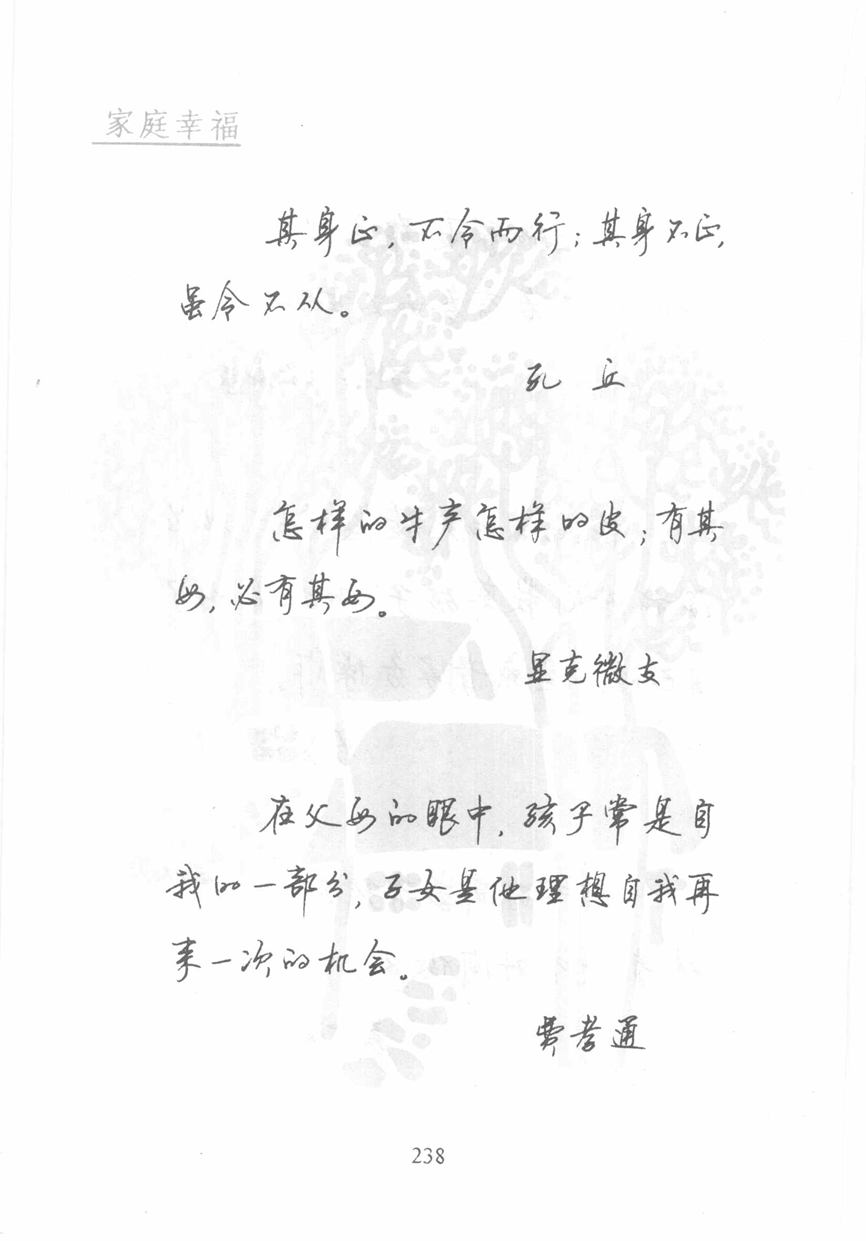 家庭幸福
其身正，不令而行；其身不正，
虽令不从。
孔 丘
怎样的牛产怎样的皮；有其
母，必有其女。
显克微支
在父母的眼中，孩子常是自
我的一部分，子女是他理想自我再
来一次的机会。
费孝通
238